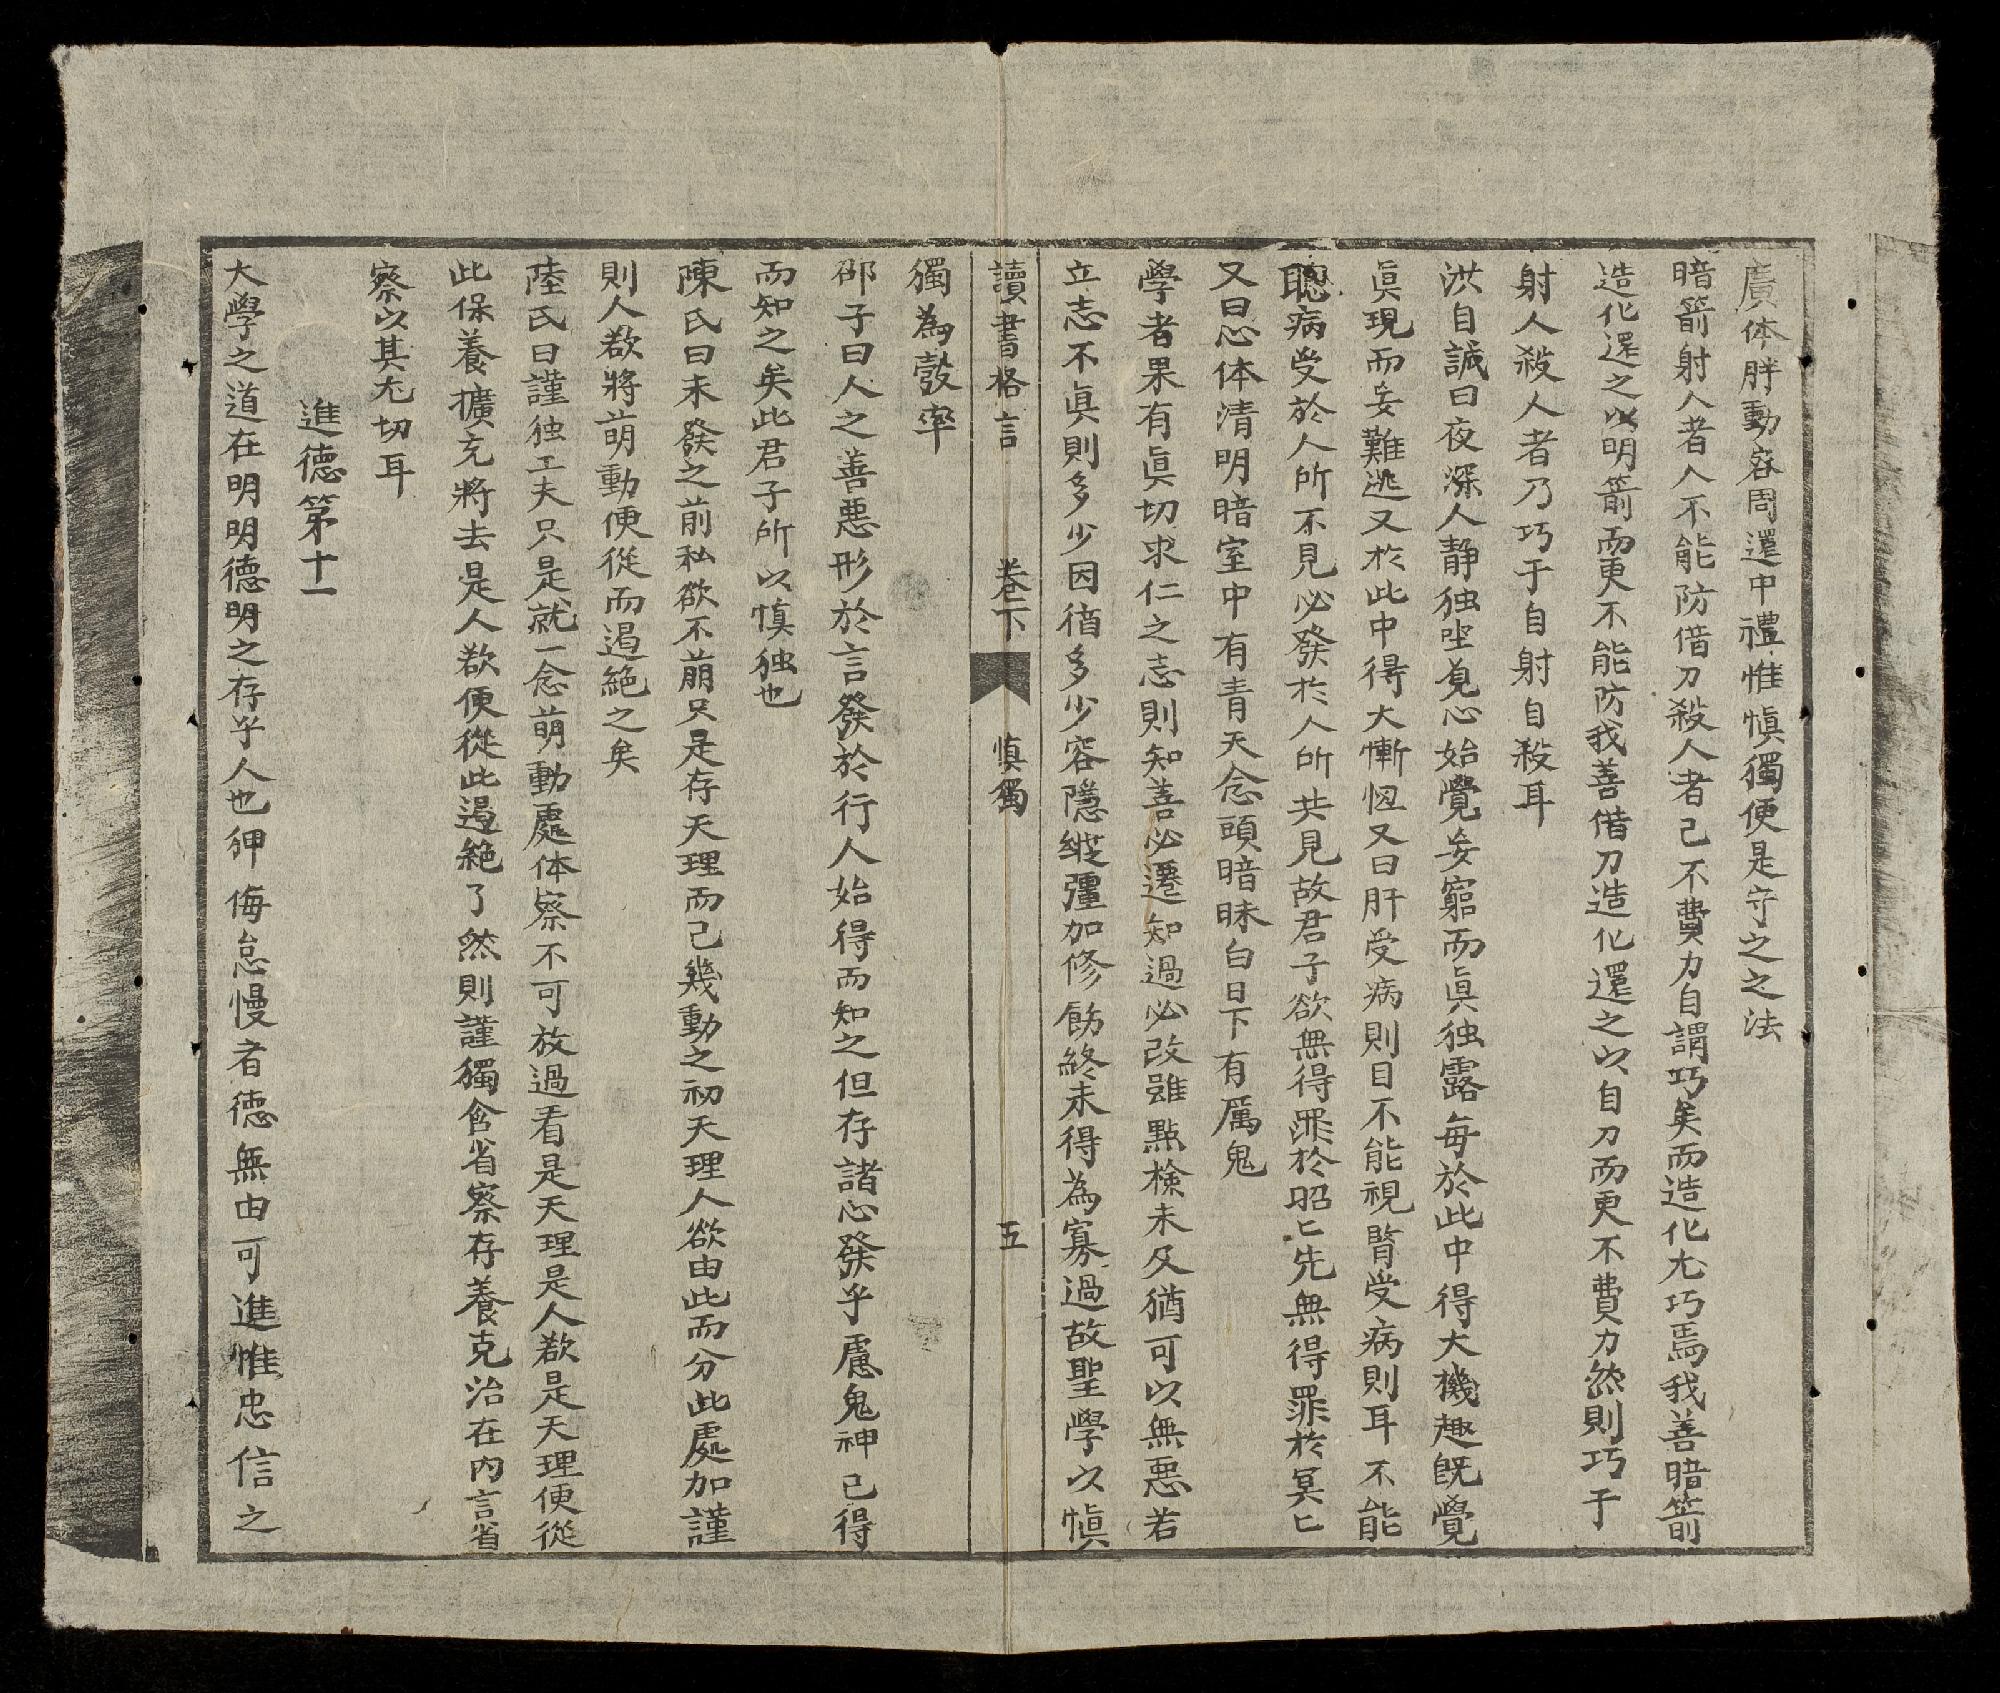 廣体胖動容周還中禮惟慎獨便是守之之法
暗箭射人者人不能防借刀殺人者己不費力自謂巧矣而造化尤巧焉我善暗箭
造化還之以明箭而更不能防我善借刀造化還之以自刀而更不費力然則巧于
射人殺人者乃巧于自射自殺耳
洪自誠曰夜深人静独坐覓心始覺妄窮而眞独露每於此中得大機趣既覺
眞現而妄難逃又於此中得大慚恧又曰肝受病則目不能視腎受病則耳不能
聰病受於人所不見必發於人所共見故君子欲無得罪於昭匕先無得罪於冥匕
又曰心体清明暗室中有青天念頭暗昧白日下有厲鬼
學者果有眞切求仁之志則知善必遷知過必改雖點檢未及猶可以無惡若
立志不眞則多少因循多少容隱縱彊加修飭終未得為寡過故聖學以慎
讀書格言 卷下 慎獨 五
獨為彀率
邵子曰人之善惡形於言發於行人始得而知之但存諸心發乎慮鬼神已得
而知之矣此君子所以慎独也
陳氏曰未發之前私欲不萠只是存天理而已幾動之初天理人欲由此而分此處加謹
則人欲將萌動便從而遏絶之矣
陸氏曰謹独工夫只是就一念萌動處体察不可放過看是天理是人欲是天理便從
此保養擴充將去是人欲便從此遏絶了然則謹獨含省察存養克治在内言省
察以其尤切耳
進德第十一
大學之道在明明德明之存乎人也狎侮怠慢者德無由可進惟忠信之